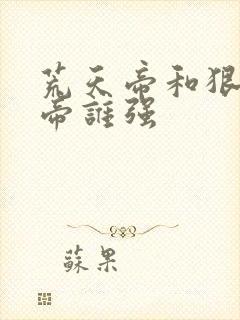 荒天帝和狠
帝誰强
蘇果